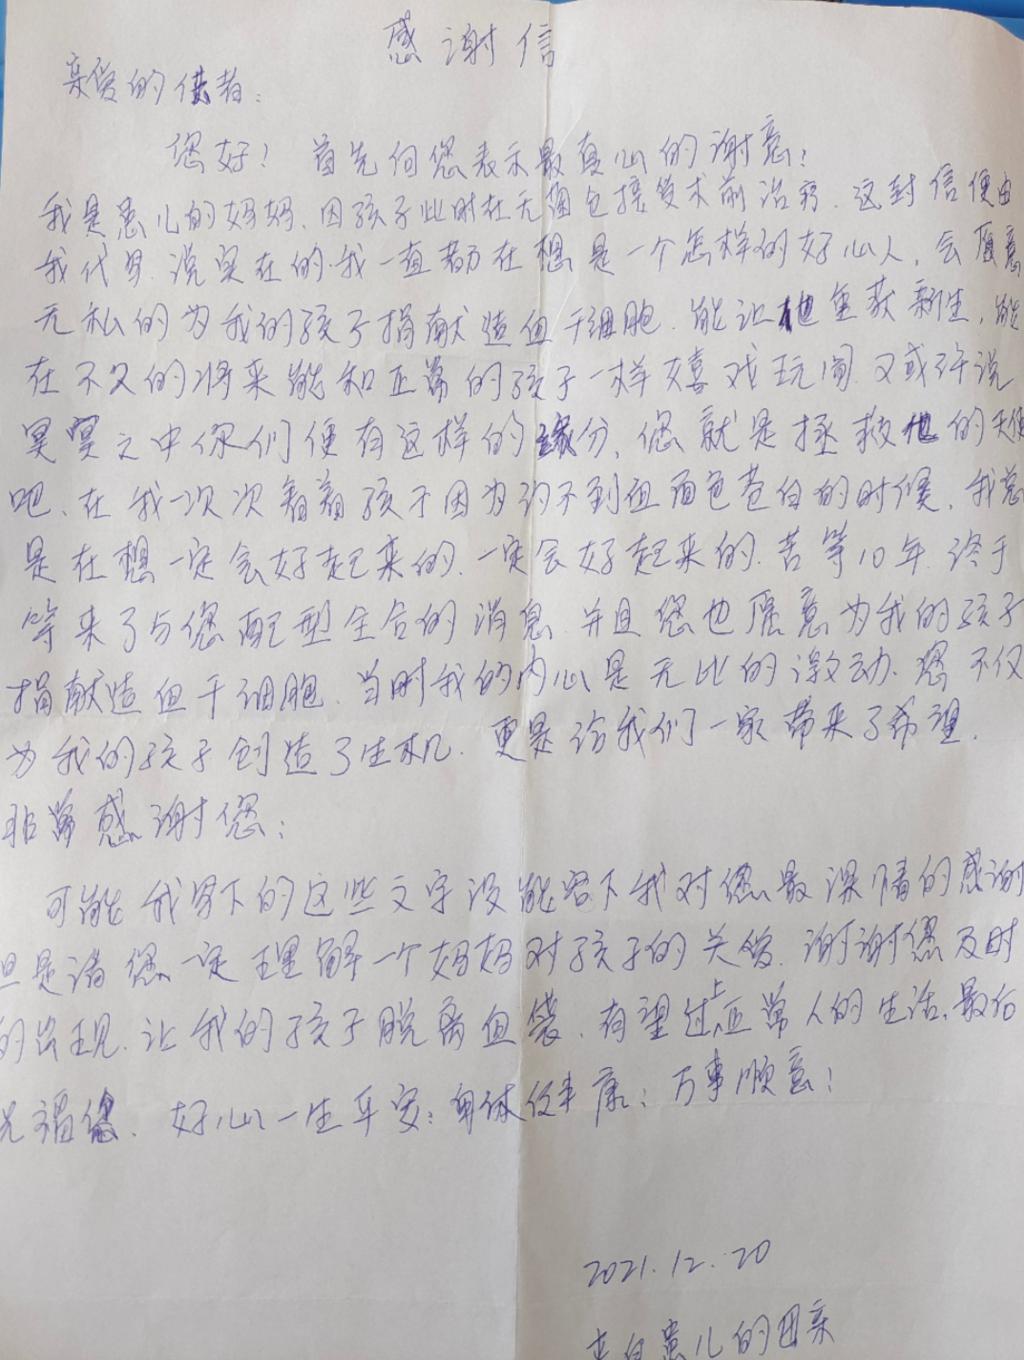 感谢信
亲爱的供者：
您好！首先向您表示最真心的谢意！
我是患儿的妈妈、因孩子此时在无菌仓接受术前治疗、这封信便由
我代写、说实在的、我一直都在想是一个怎样的好心人，会愿意
无私的为我的孩子捐献造血干细胞、能让他重获新生，能
在不久的将来能和正常的孩子一样嬉戏玩闹、又或许说
冥冥之中你们便有这样的缘分、您就是拯救他的天使
吧、在我一次次看着孩子因为约不到血面色苍白的时候、我总
是在想一定会好起来的、一定会好起来的、苦等10年、终于
等来了与您配型全合的消息、并且您也愿意为我的孩子
捐献造血干细胞、当时我的内心是无比的激动、您不仅
为我的孩子创造了生机、更是给我们一家带来了希望、
非常感谢您；
可能我写下的这些文字没能写下我对您最深情的感谢
但是请您一定理解一个妈妈对孩子的关爱、谢谢您及时
的出现、让我的孩子脱离血袋、有望过上正常人的生活、最后
祝福您、好心一生平安；身体健康；万事顺意！
2021.12.20
来自患儿的母亲